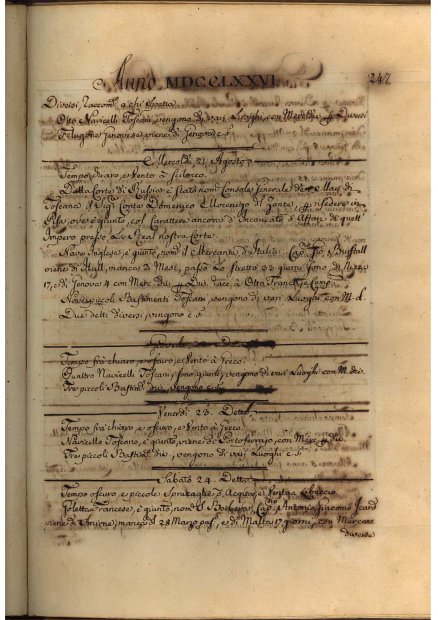 Anno MDCCLXXVI. 247
Diversi, Raccom. a chi Spetta
Otto Navicelli Toscani, vengono di varj Luoghi, con Merc. Diversi
Feluga Genovese, viene di Genova
Mercoldì 21 Agosto
Tempo chiaro, e Vento à Scilocco.
Dalla Corte di Russia è stato nom. Console Generale
Toscana il Sig. Conte Domenico Mocenigo del Zante, risedere in
Pisa ove è giunto, col Carattere ancora d'Incaricato d'Affari di quell'
Impero presso La Real nostra Corte.
Nave Inglese, è giunto, nom. il Mercante d'Italia, Cap. Gio. Bustall
viene di Hull, manca 2 Mesi, passò Lo Stretto 33 giorni sono, di
17, e di Genova 4 con Merc. Div. racc. à Otto Franck, e Comp.
Nove piccoli Bastimenti Toscani, vengono di varj Luoghi, con M. d.
Due detti diversi, vengono
Tempo frà chiaro, e oscuro, e Vento à Greco.
Quattro Navicelli Toscani, sono giunti, vengono di varj Luoghi con M. div.
Tre piccoli Bastim. div. vengono
Venerdì 23. Detto
Tempo frà chiaro, e oscuro, e Vento à Greco.
Navicello Toscano, è giunto, viene di Portoferrajo, con Merc. Div.
Tre piccoli Bastim. div., vengono di varj Luoghi
Sabato 24. Detto
Tempo oscuro, e piccole Spruzaglie d'Acqua, e Vento à Libeccio
Poletta Francese, è giunta, nom. Cap. Antonio Giacomo Icard
viene di Smirne, manca dì 28 Marzo pas., e di Malta 17 giorni, con Mercanz.
diverse